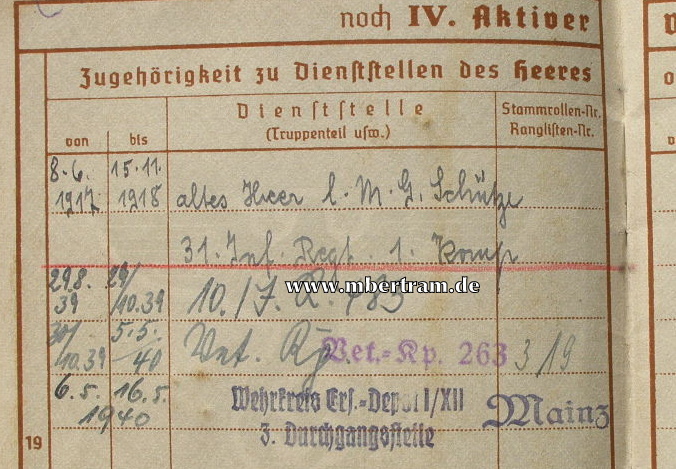 noch IV. Aktiver
Zugehörigkeit zu Dienststellen des Heeres
von bis Dienststelle (Truppenteil usw.) Stammrollen-Nr. Ranglisten-Nr.
8.6. 1917 15.11. 1918 altes Heer l. M. G. Schütze
31. Inf. Regt. 1. Komp
29.8. 39 29/10.39 10./J.R.
www.mbertram.de
30/10.39 5.5. 40 Vet. Kp Vet.-Kp. 263 319
6.5. 16.5. 1940 Wehrkreis Ers.-Depot I/XII Mainz
3. Durchgangsstelle
19